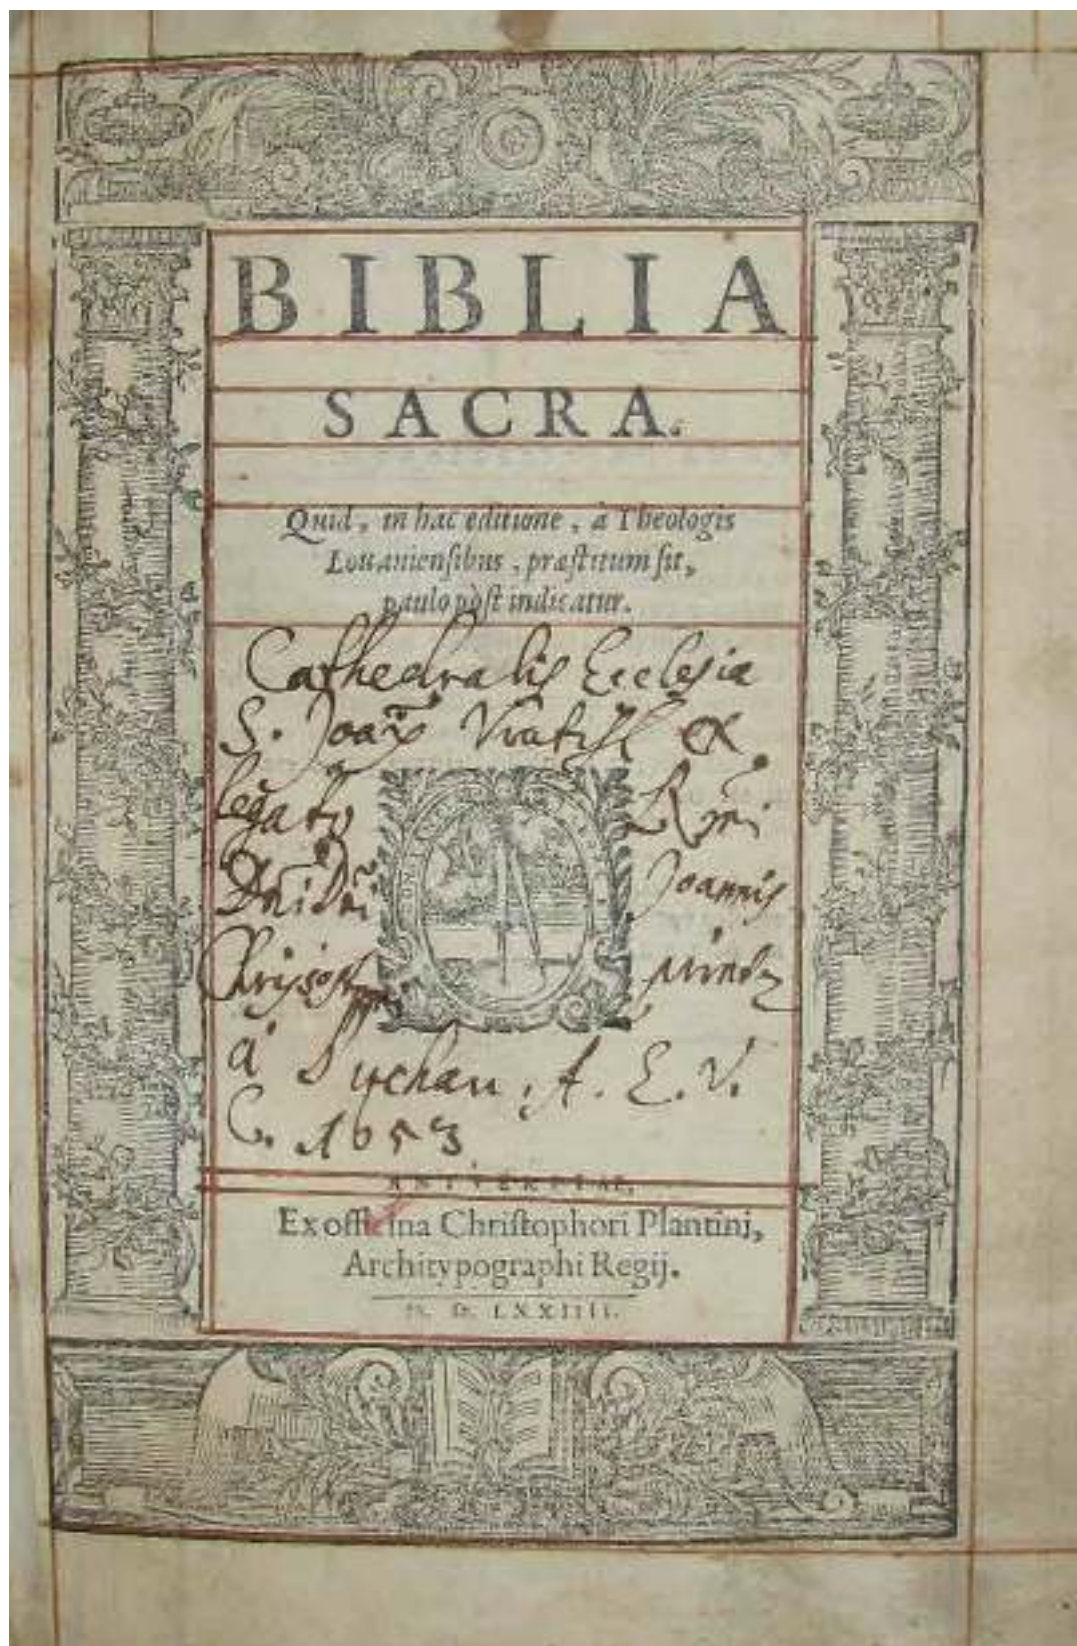 BIBLIA
SACRA.
Quid, in hac editione, à Theologis
Louaniensibus, præstitum sit,
paulo pòst indicatur.
Cathedralis Ecclesiæ
S. Joan̄ Vratisl ex
legato R̄mi
Dn̄i Dn̄i Joannis
à
C. 1653
ANTVERPIAE,
Ex officina Christophori Plantini,
Architypographi Regij.
M. D. LXXIIII.